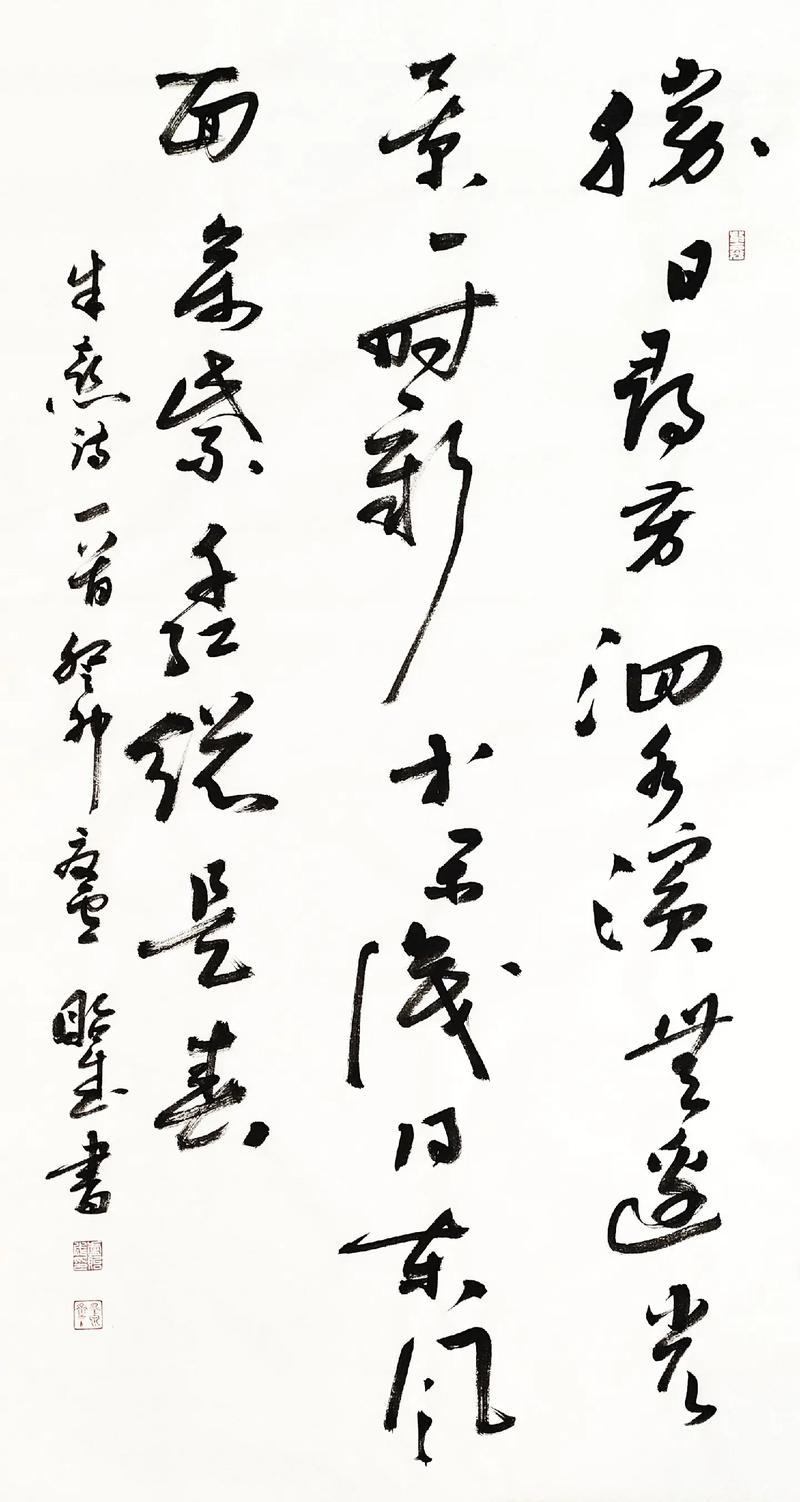 勝日尋芳泗水濱無邊光
景一時新等閑識得東風
面萬紫千紅總是春
朱熹詩一首癸卯書